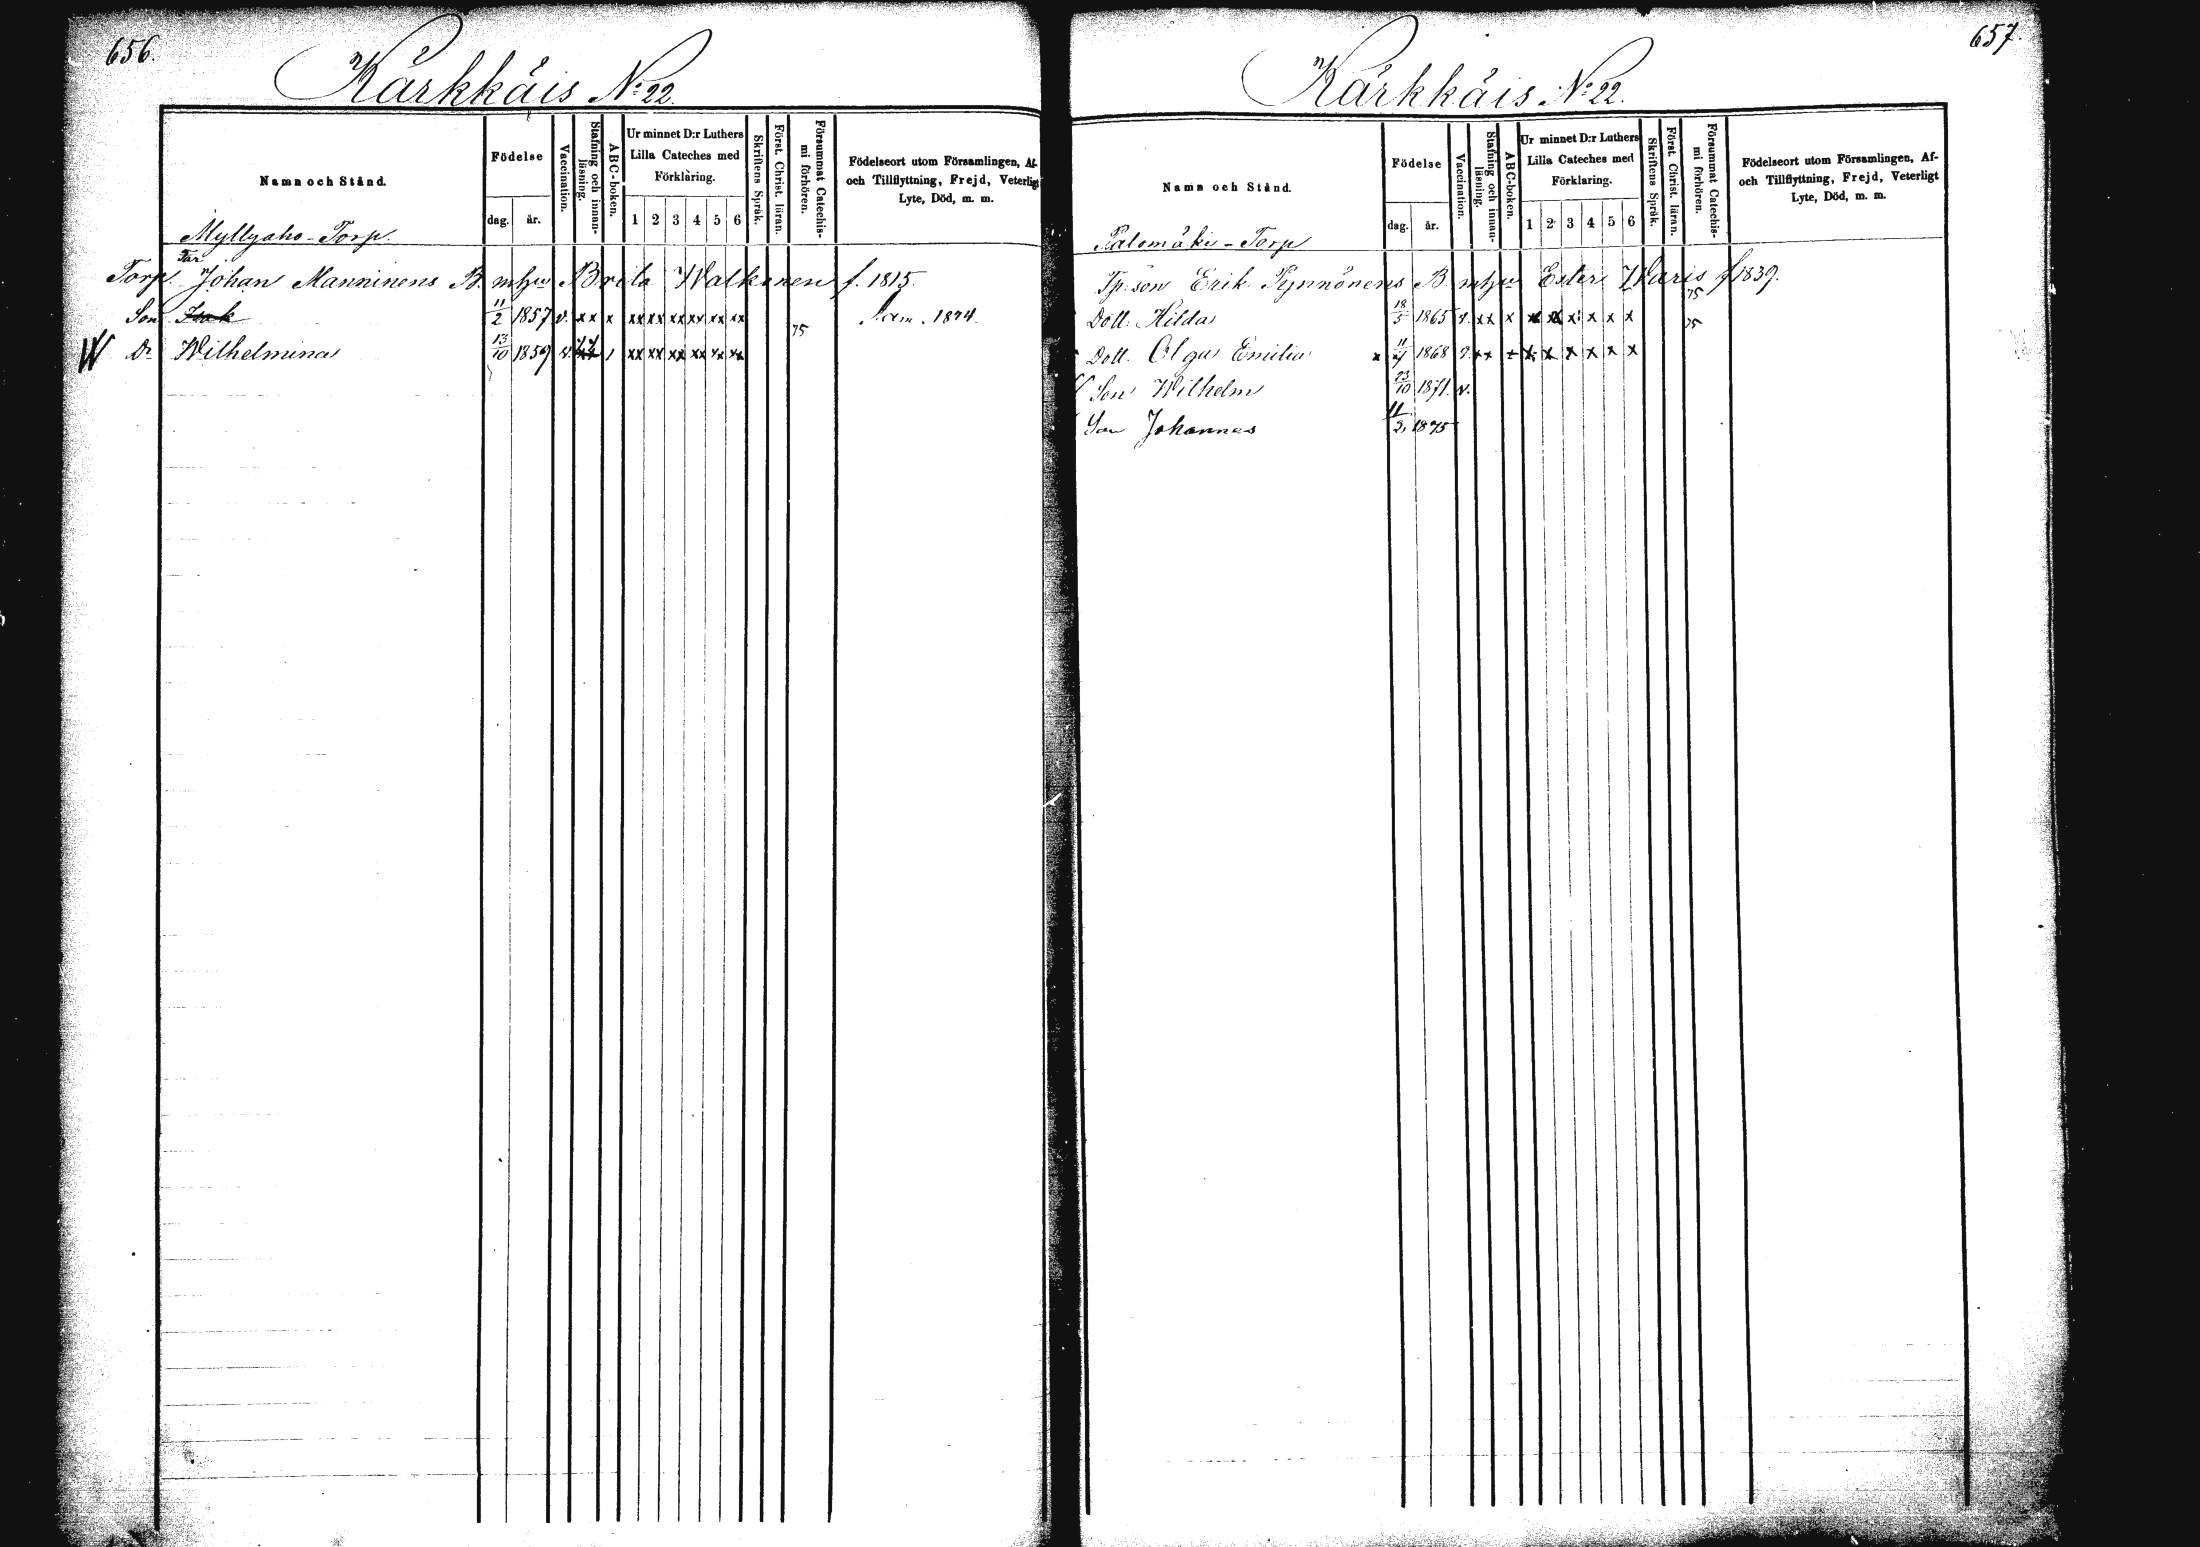 656.
Kärkkäis No 22.
Namn och Stånd.
Födelse
dag.
år.
Vaccination.
Stafning och innanläsning.
ABC-boken.
Ur minnet D:r Luthers
Lilla Cateches med
Förklaring.
1 2 3 4 5 6
Skriftens Språk.
Först. Christ. läran.
Försummat Catechismi förhören.
Födelseort utom Församlingen, Af-
och Tillflyttning, Frejd, Veterligt
Lyte, Död, m. m.
Myllyaho-Torp.
Torp. Johan Manninens B. m hu Brita f. 1815.
Son Isak 11/2 1857 v. xx x xx xx xx xx xx xx 1874.
75
Dr Wilhelmina 13/10 1859 v. xx xx xx xx xx xx
657.
Kärkkäis No 22.
Namn och Stånd.
Födelse
dag.
år.
Vaccination.
Stafning och innanläsning.
ABC-boken.
Ur minnet D:r Luthers
Lilla Cateches med
Förklaring.
1 2 3 4 5 6
Skriftens Språk.
Först. Christ. läran.
Försummat Catechismi förhören.
Födelseort utom Församlingen, Af-
och Tillflyttning, Frejd, Veterligt
Lyte, Död, m. m.
Palomäki-Torp
Tp: son Erik Pynnönens B m hu Ester Waris f 1839.
75
Dott. Hilda 18/5 1865 v. xx x x x x x x x 75
Dott. Olga Emilia 1868 v. xx x x x x x x
Son Wilhelm 23/10 1871. v.
Son Johannes 11/2 1875